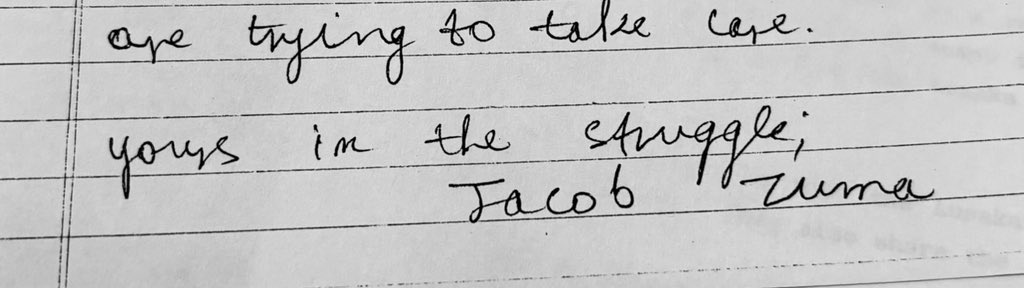 are trying to take care.
yours in the struggle;
Jacob Zuma